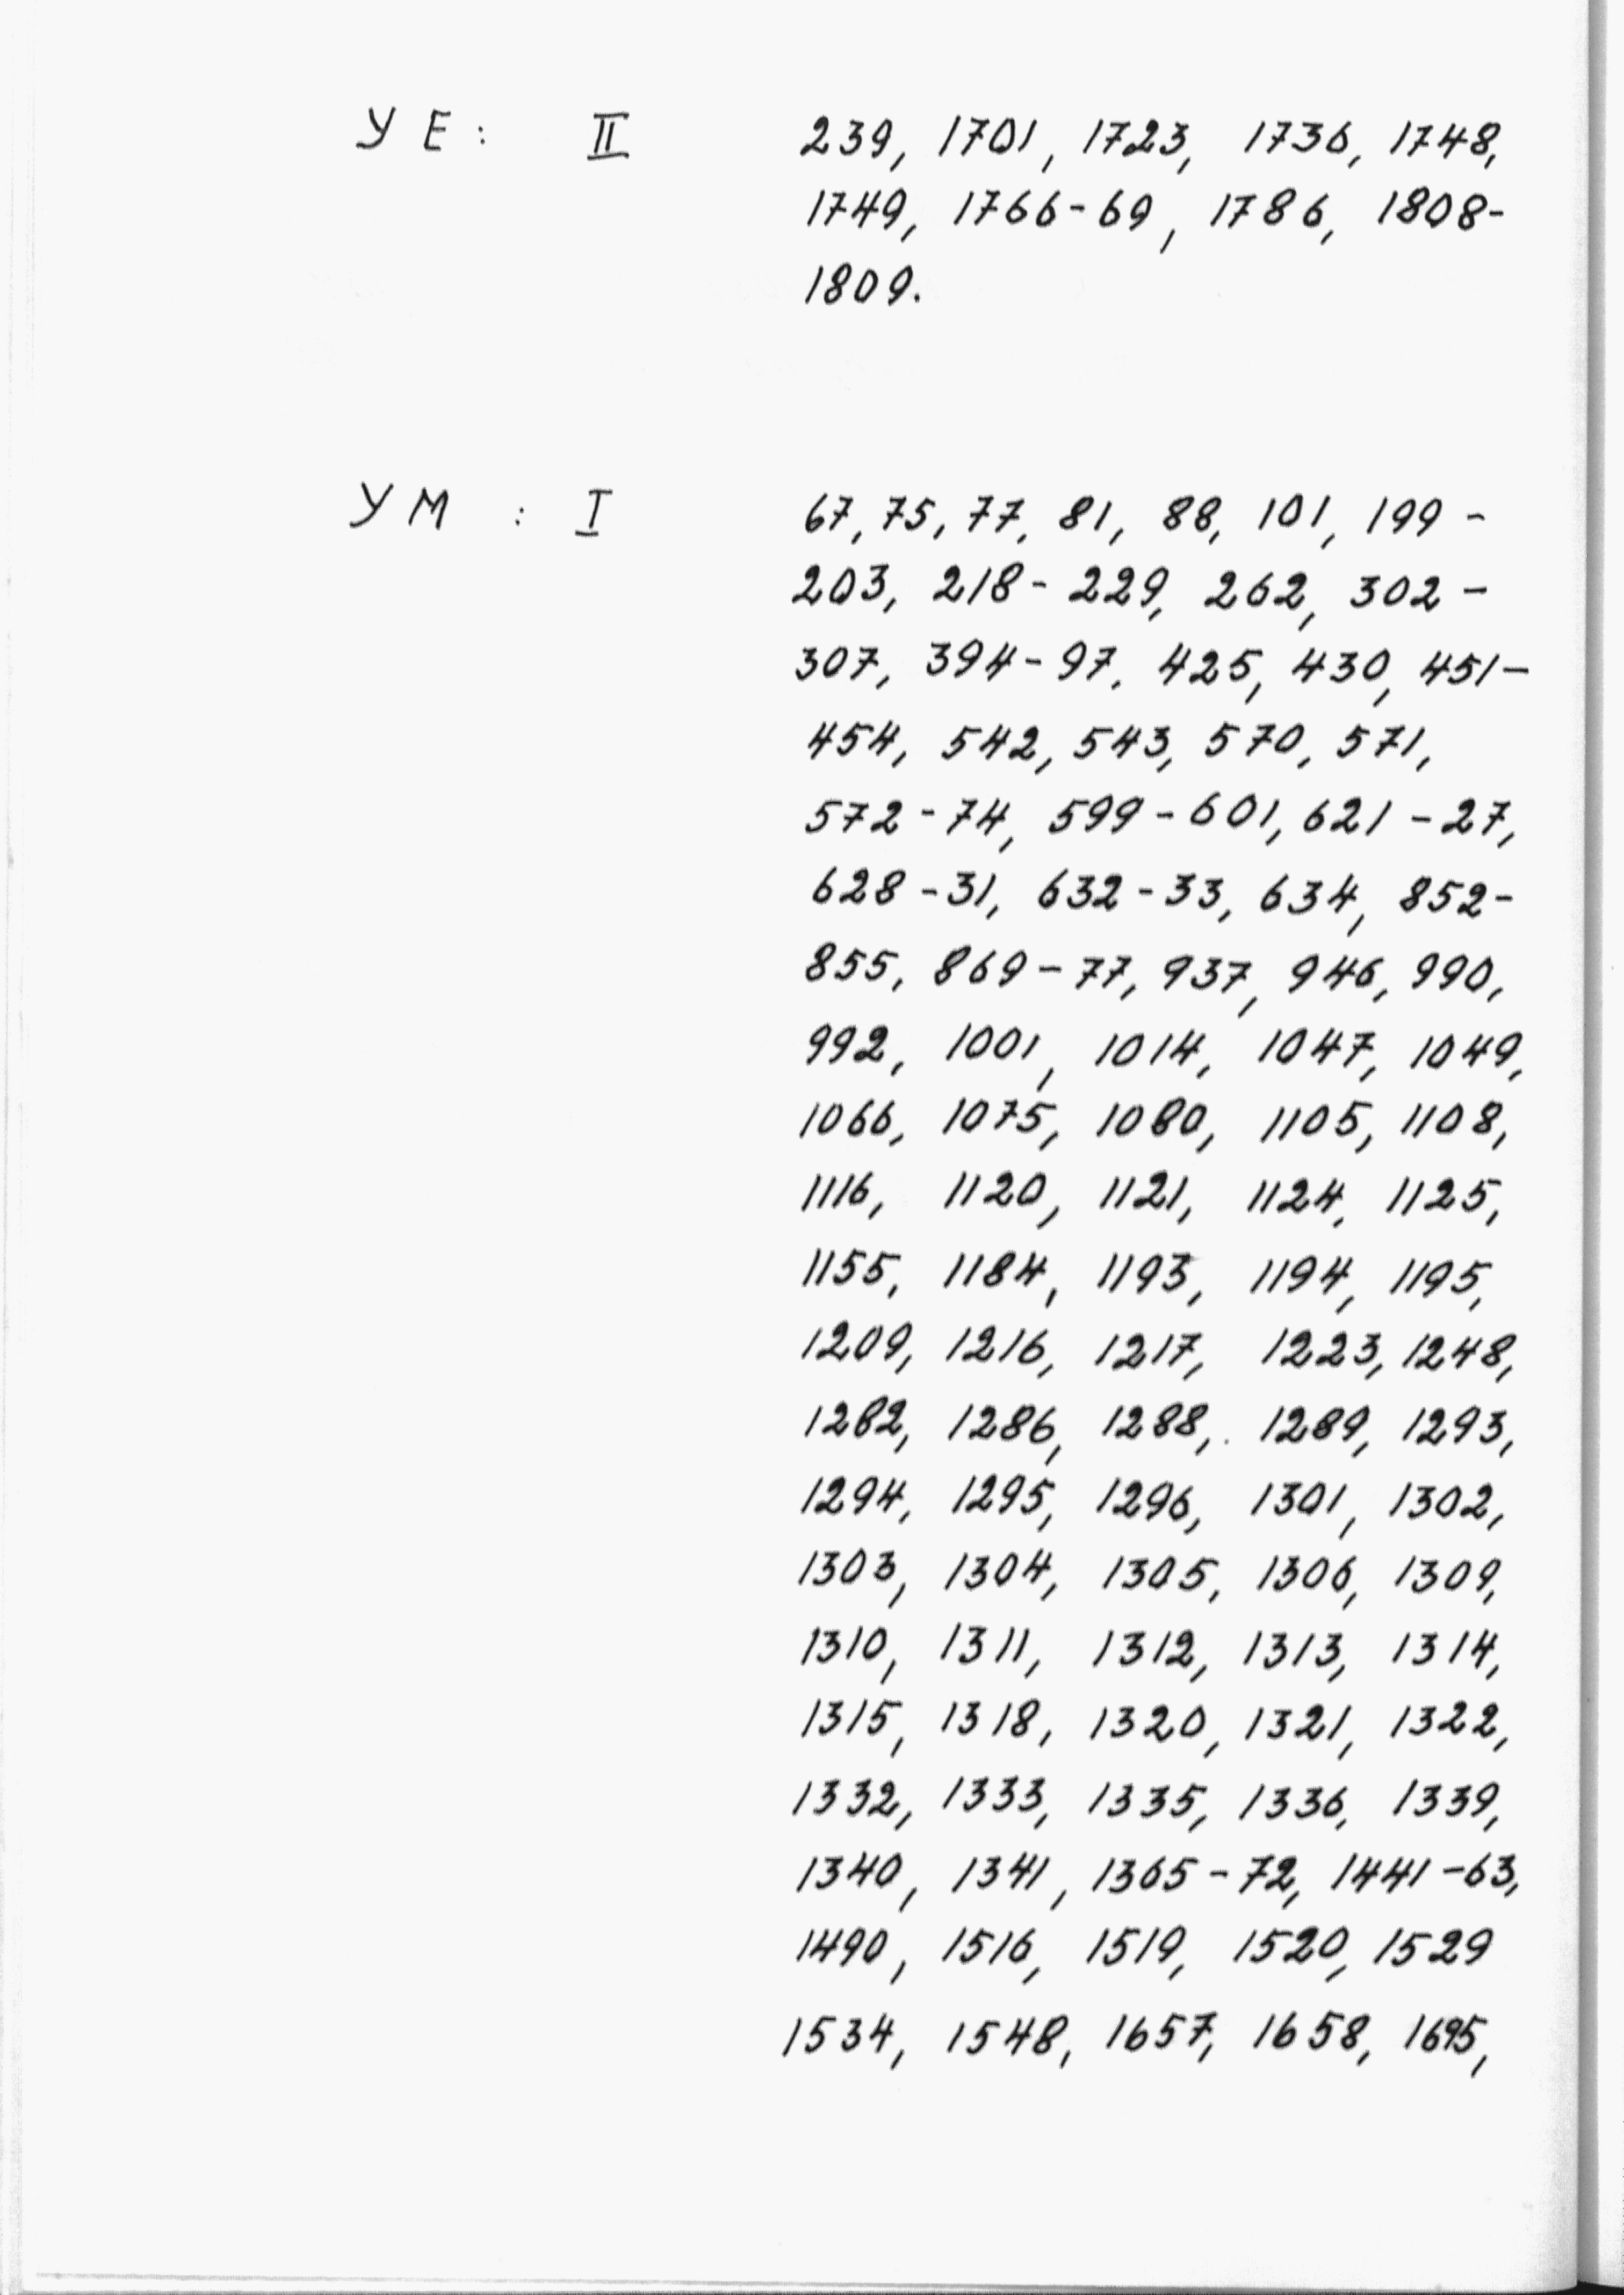 УЕ: II 239, 1701, 1723, 1736, 1748,
1749, 1766-69, 1786, 1808-
1809.
УМ : I 67, 75, 77, 81, 88, 101, 199 -
203, 218 - 229, 262, 302 -
307, 394 - 97. 425, 430, 451 -
454, 542, 543, 570, 571,
572 - 74, 599 - 601, 621 - 27,
628 - 31, 632 - 33, 634, 852 -
855, 869 - 77, 937, 946, 990,
992, 1001, 1014, 1047, 1049,
1066, 1075, 1080, 1105, 1108,
1116, 1120, 1121, 1124, 1125,
1155, 1184, 1193, 1194, 1195,
1209, 1216, 1217, 1223, 1248,
1282, 1286, 1288, 1289, 1293,
1294, 1295, 1296, 1301, 1302,
1303, 1304, 1305, 1306, 1309,
1310, 1311, 1312, 1313, 1314,
1315, 1318, 1320, 1321, 1322,
1332, 1333, 1335, 1336, 1339,
1340, 1341, 1365 - 72, 1441 - 63,
1490, 1516, 1519, 1520, 1529
1534, 1548, 1657, 1658, 1695,